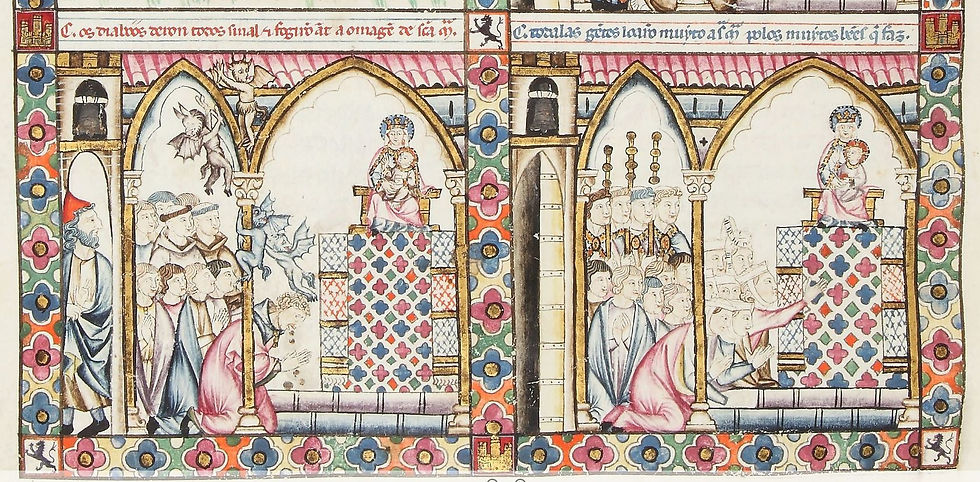 C. os diaboos deron todos sinal ⁊ fogirõ ãt a omagẽ de scã m̃.
C. todalas gẽtes loarõ muyto a s̃ m̃ polos muytos bẽes q̃ faz.